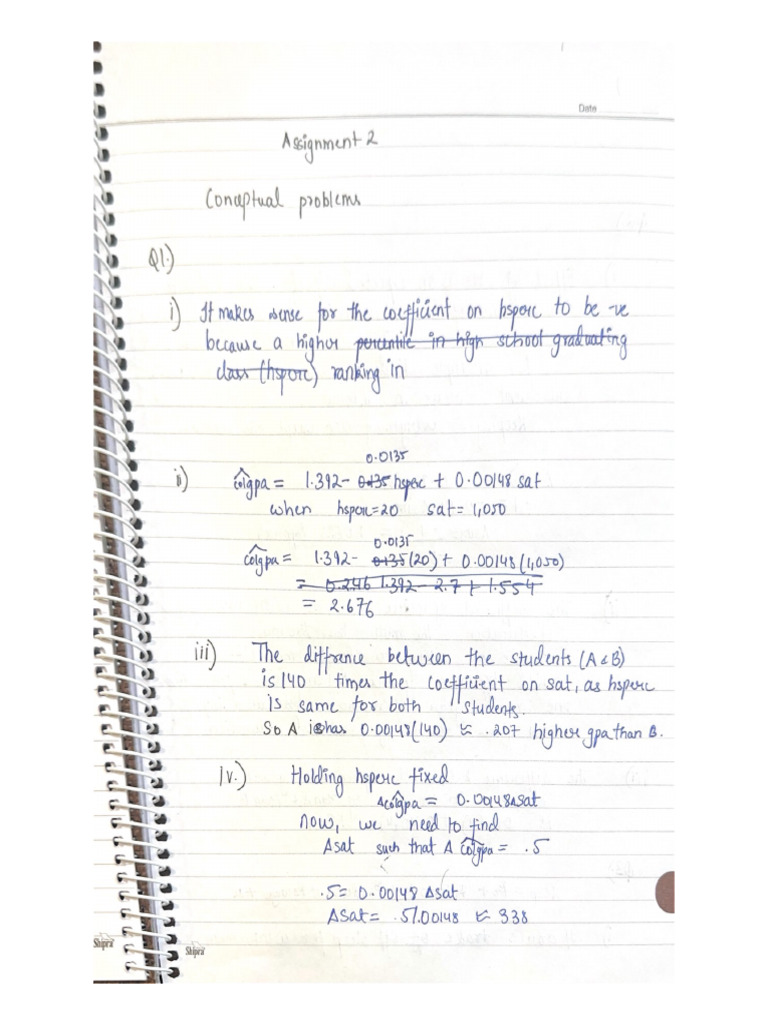 Date
Assignment 2
Conceptual problems
Q1.)
i) It makes sense for the coefficient on hsperc to be -ve
because a higher percentile in high school graduating
class (hsperc) ranking in
0.0135
ii) colgpa = 1.392- 0.135 hsperc + 0.00148 sat
when hsperc=20 sat= 1,050
0.0135
colgpa = 1.392- 0.135 (20) + 0.00148 (1,050)
= 0.246 1.392 - 2.7 + 1.554
= 2.676
iii) The diffrance between the students (A & B)
is 140 times the coefficient on sat, as hsperc
is same for both students.
So A is has 0.00148(140) ≈ .207 higher gpa than B.
iv.) Holding hsperc fixed
Δcolgpa = 0.00148Δsat
now, we need to find
Δsat such that Δ colgpa = .5
.5= 0.00148 Δsat
ΔSat= .5/.00148 ≈ 338
Shipra Shipra